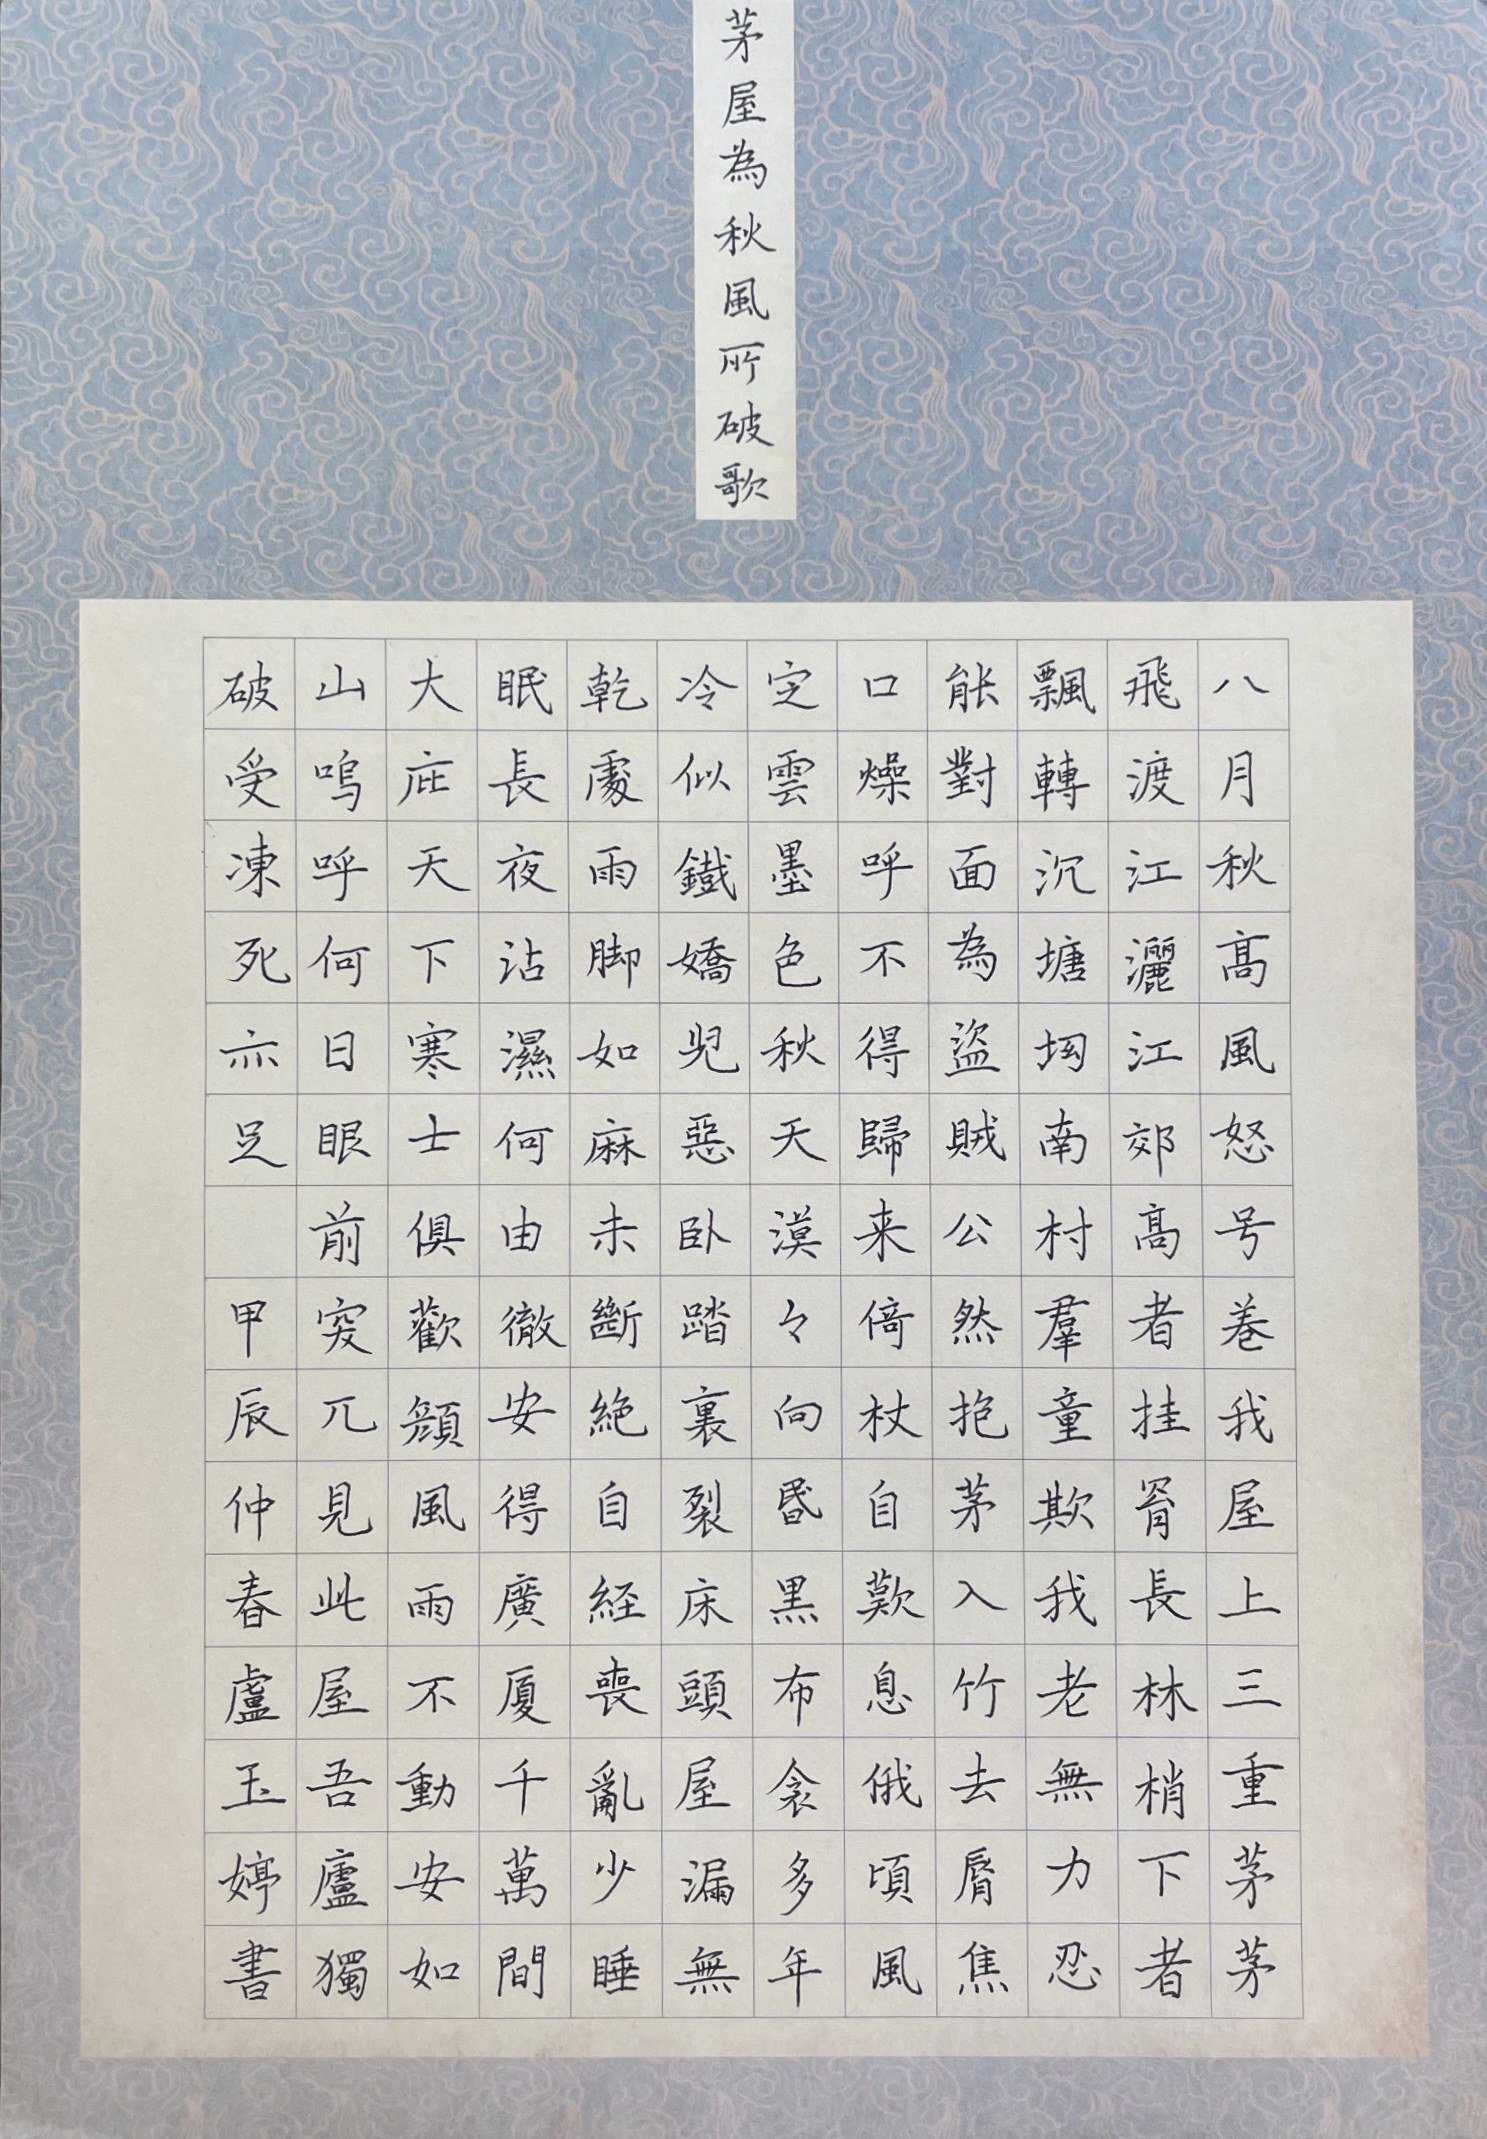 茅屋為秋風所破歌
八月秋髙風怒号卷我屋上三重茅茅
飛渡江灑江郊髙者挂罥長林梢下者
飄轉沉塘坳南村羣童欺我老無力忍
能對面為盜賊公然抱茅入竹去脣焦
口燥呼不得歸来倚杖自歎息俄頃風
定雲墨色秋天漠々向昏黒布衾多年
冷似鐵嬌児惡卧踏裏裂床頭屋漏無
乾處雨脚如麻未斷絶自経喪亂少睡
眠長夜沾濕何由徹安得廣厦千萬間
大庇天下寒士俱歡顔風雨不動安如
山嗚呼何日眼前突兀見此屋吾廬獨
破受凍死亦足 甲辰仲春盧玉婷書